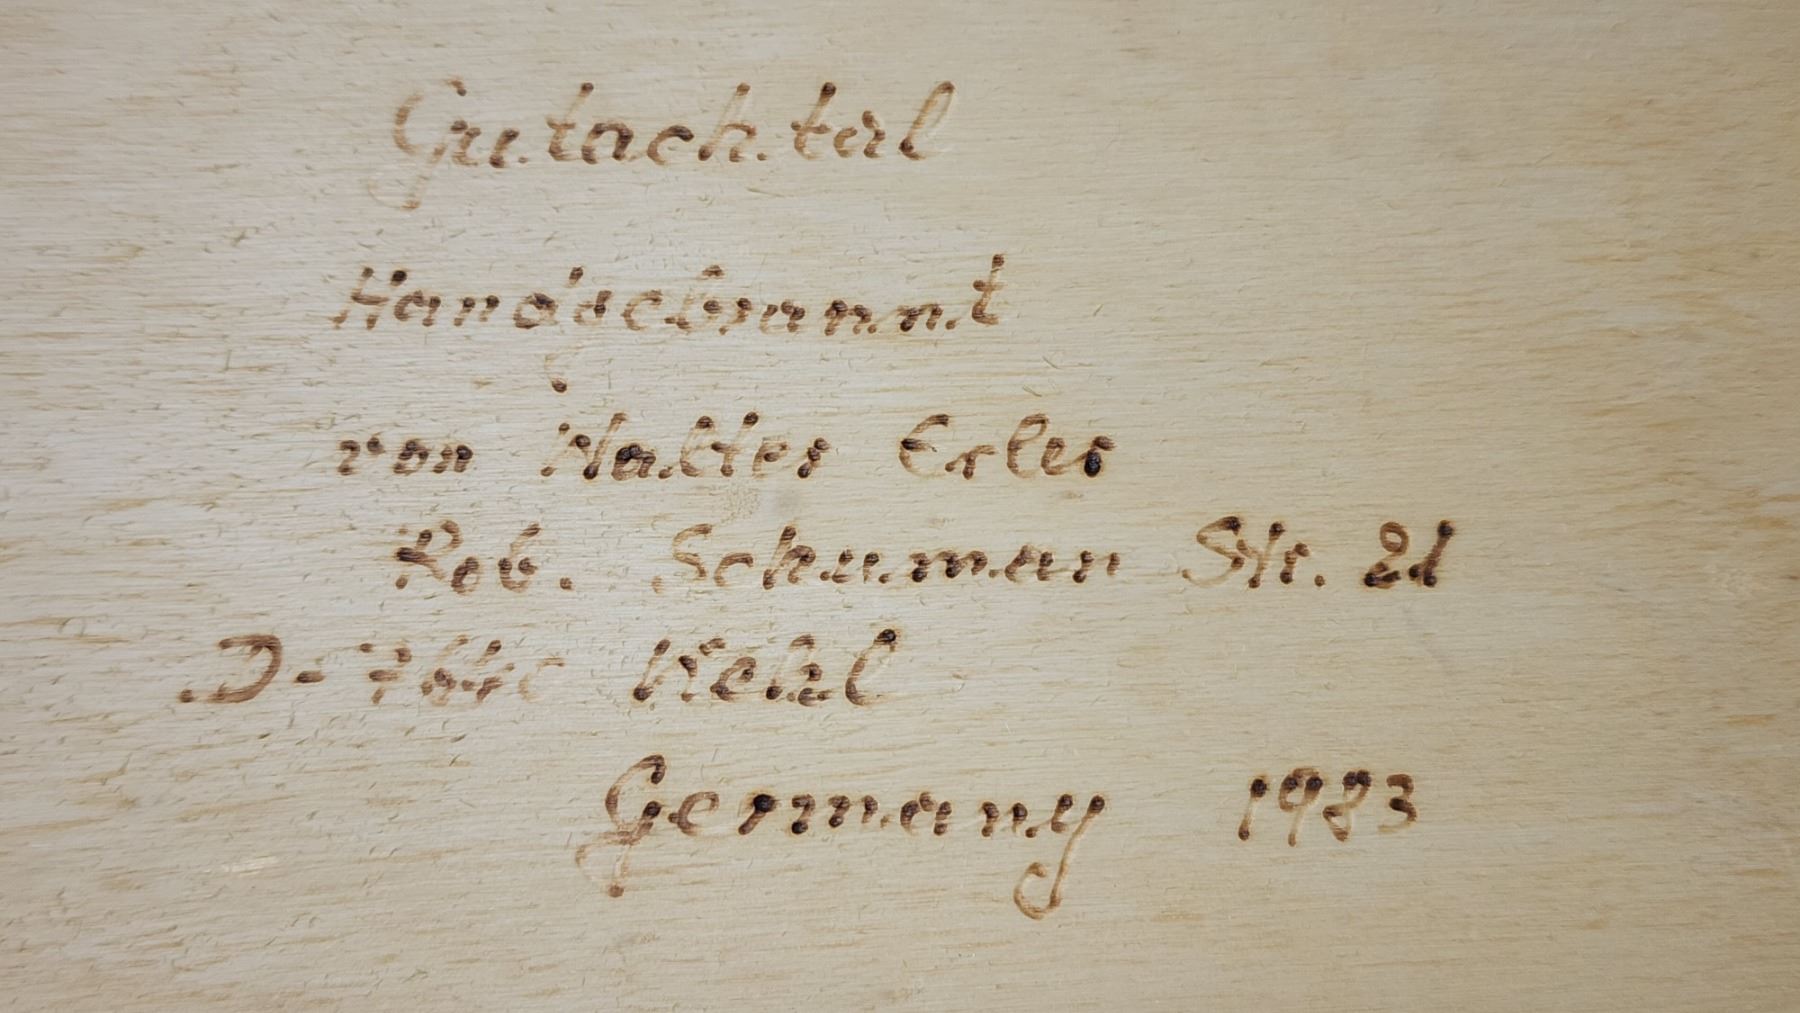 Gutachtal
Handgebrannt
von Walter Erler
Rob. Schuman Str. 21
D-7640 Kehl
Germany 1983